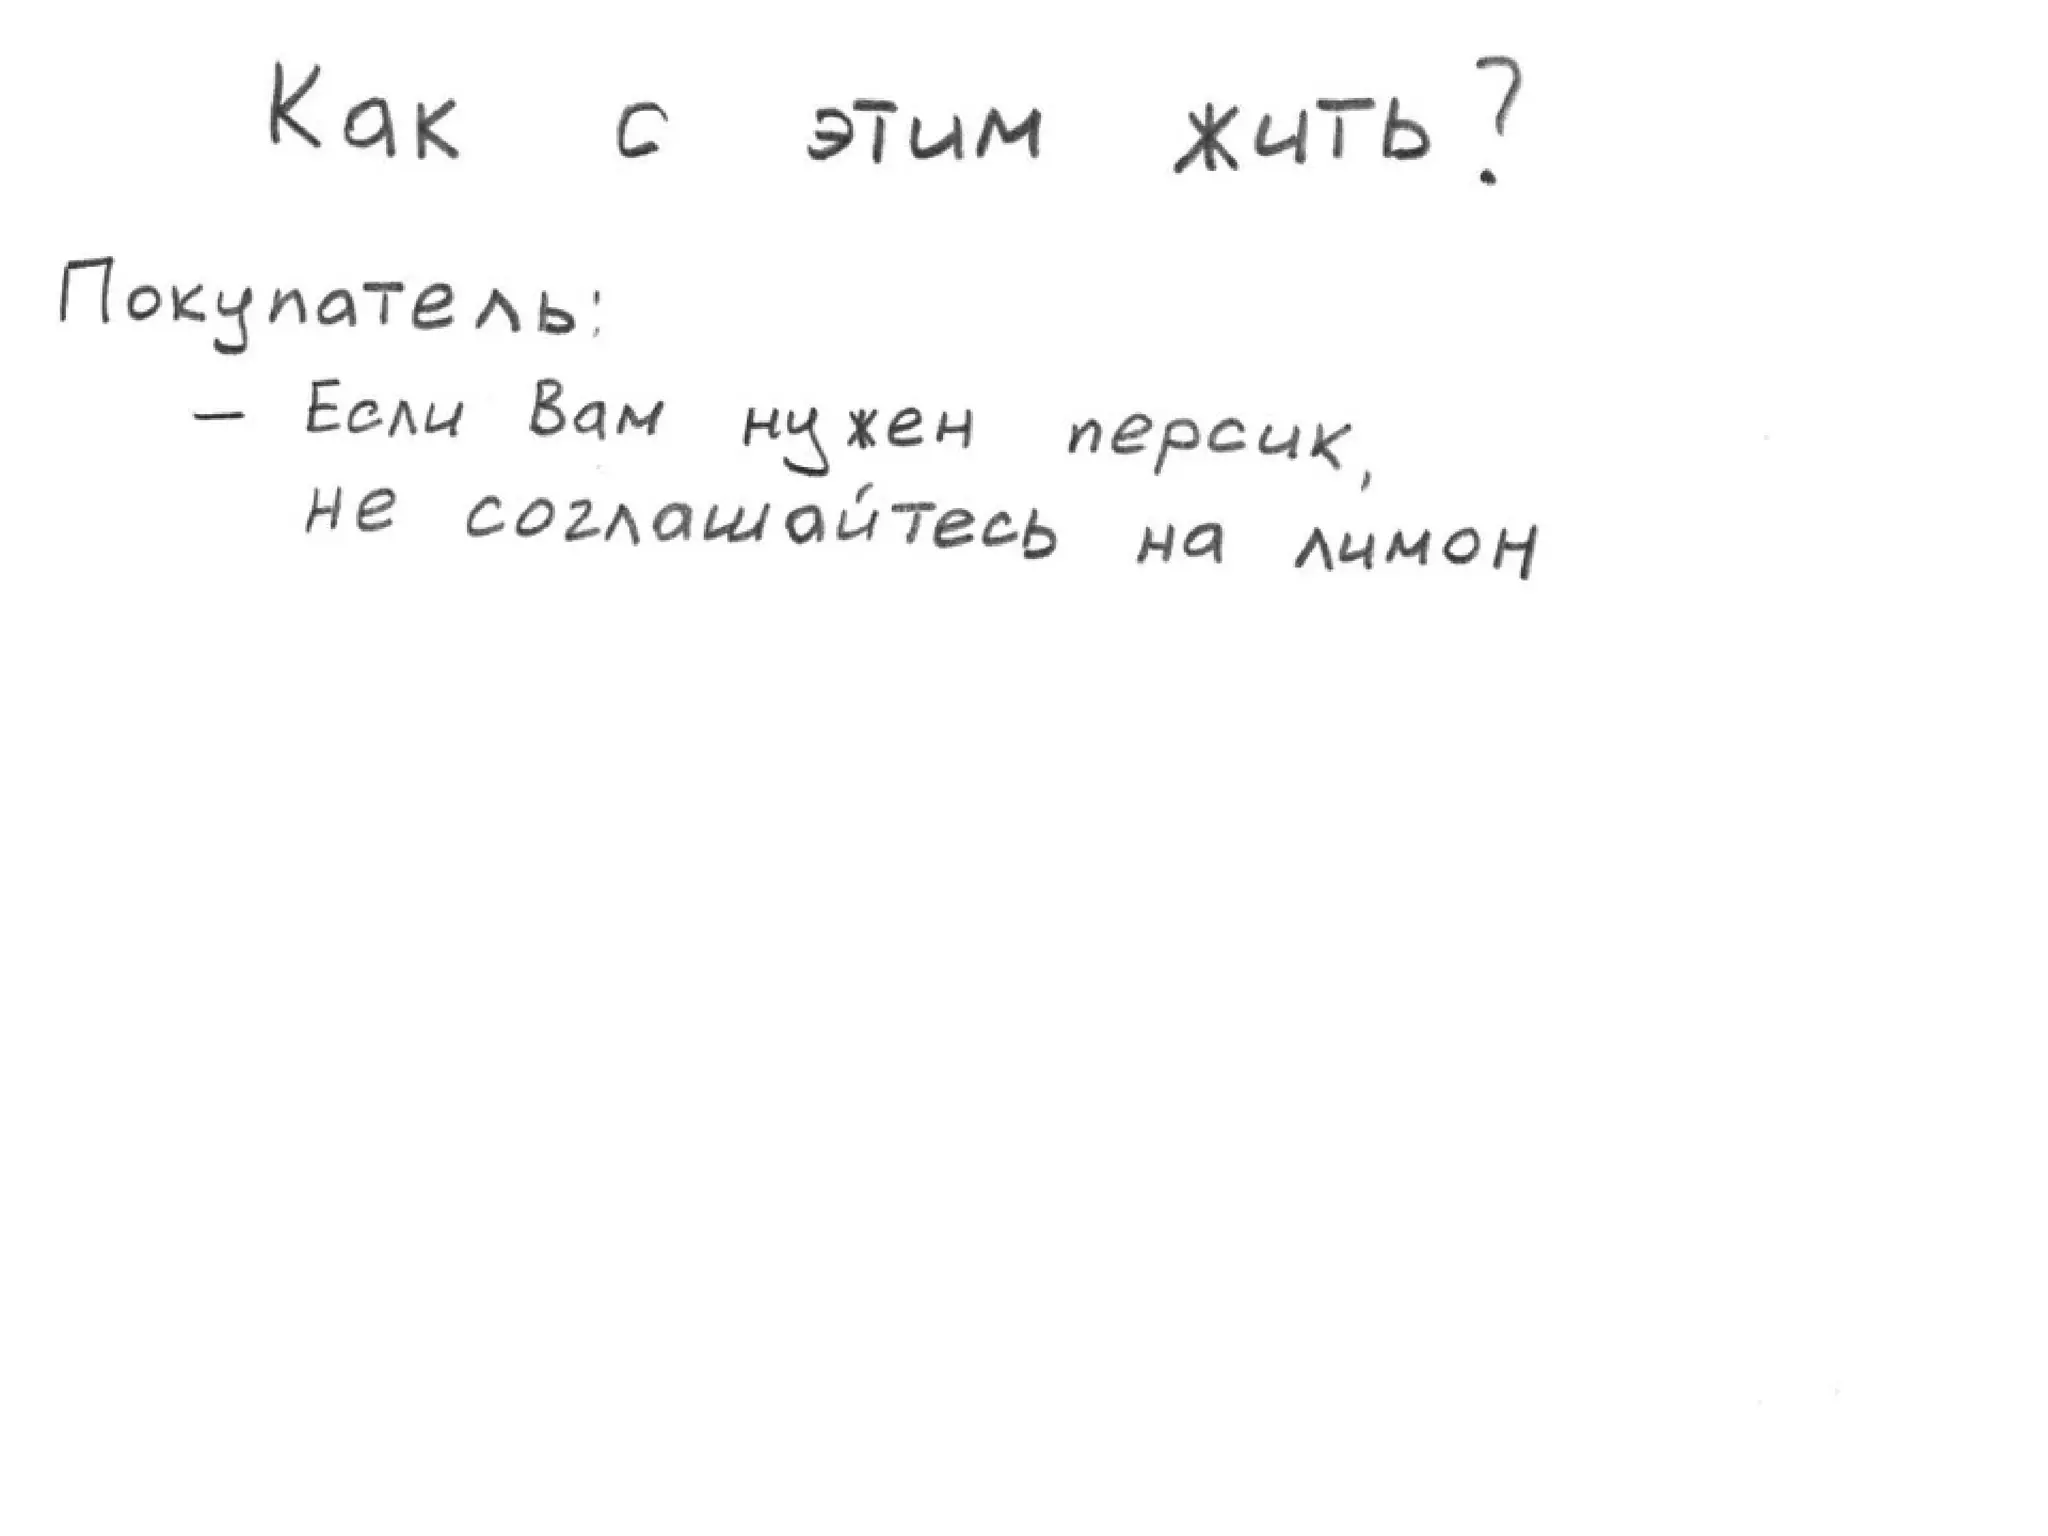 Как с этим жить?
Покупатель:
– Если Вам нужен персик,
не соглашайтесь на лимон